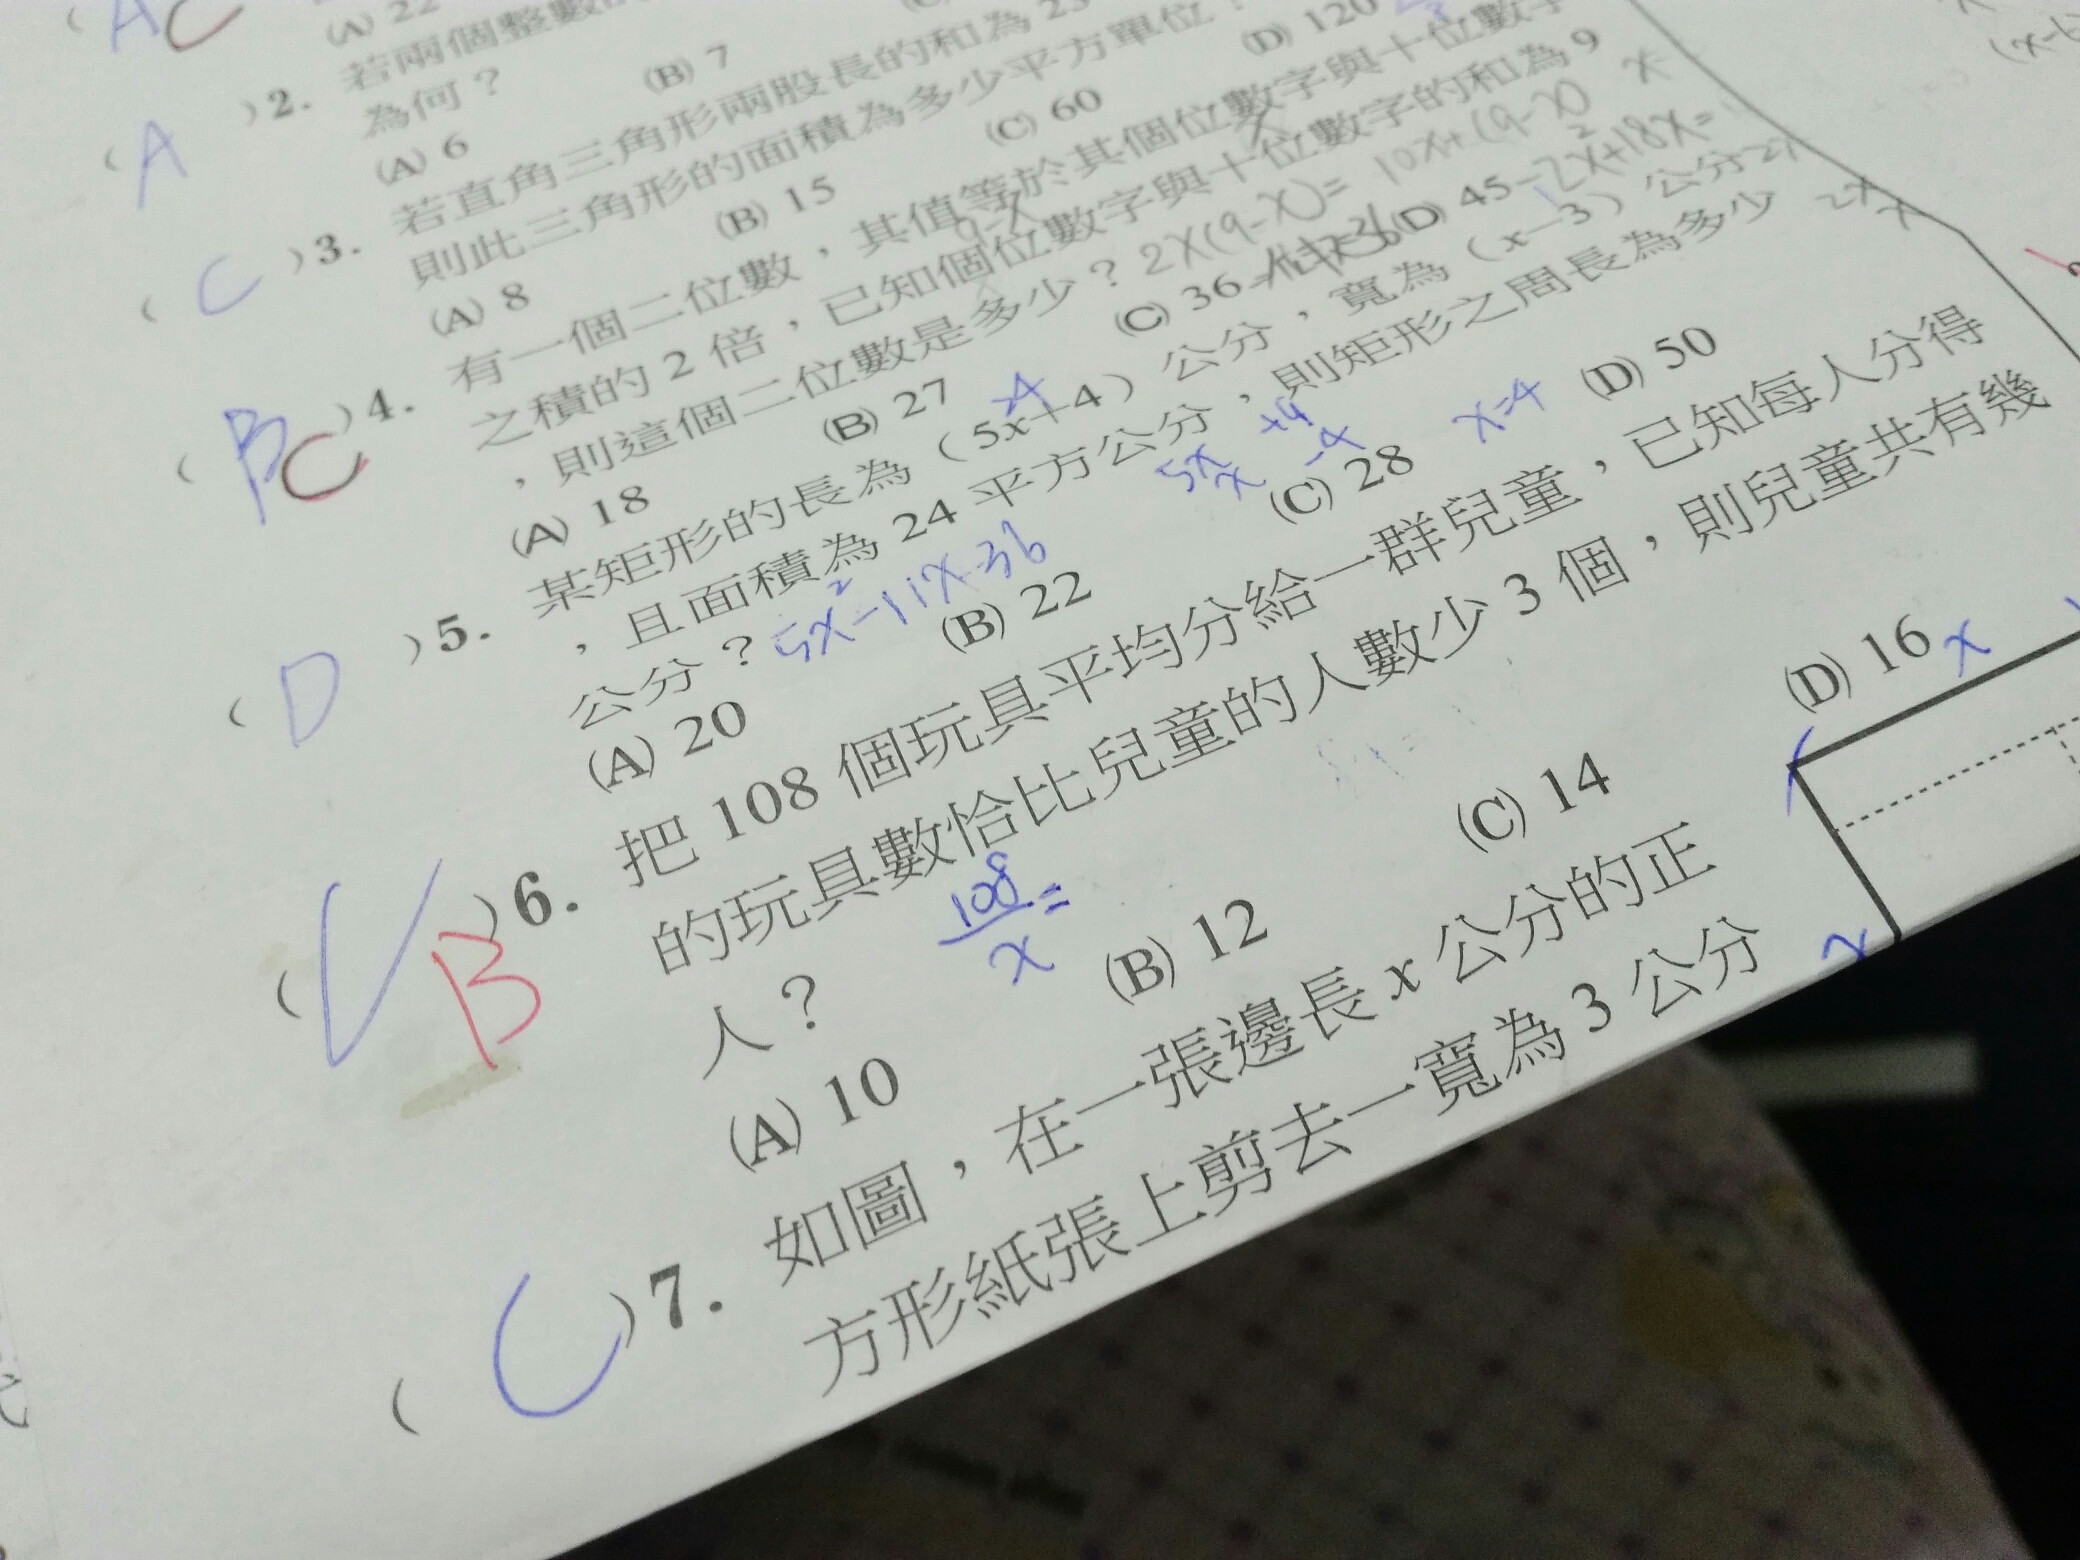 AC
(A) 22
( A )2. 若兩個整數
為何？
(A) 6 (B) 7
( C )3. 若直角三角形兩股長的和為 23
則此三角形的面積為多少平方單位？
(A) 8 (B) 15 (C) 60 (D) 120
( B C )4. 有一個二位數，其值等於其個位數字與十位數字
之積的 2 倍，已知個位數字與十位數字的和為 9
，則這個二位數是多少？ 2X(9-X)= 10X+(9-X)
(A) 18 (B) 27 (C) 36 (D) 45 -2X²+18X=
( D )5. 某矩形的長為（5x+4）公分，寬為（x−3）公分
，且面積為 24 平方公分，則矩形之周長為多少
公分？ 5x²-11x-36
5x +4
x -4
x=4
(A) 20 (B) 22 (C) 28 (D) 50
( B )6. 把 108 個玩具平均分給一群兒童，已知每人分得
的玩具數恰比兒童的人數少 3 個，則兒童共有幾
人？ 108/x =
(A) 10 (B) 12 (C) 14 (D) 16
( C )7. 如圖，在一張邊長 x 公分的正
方形紙張上剪去一寬為 3 公分
x
x